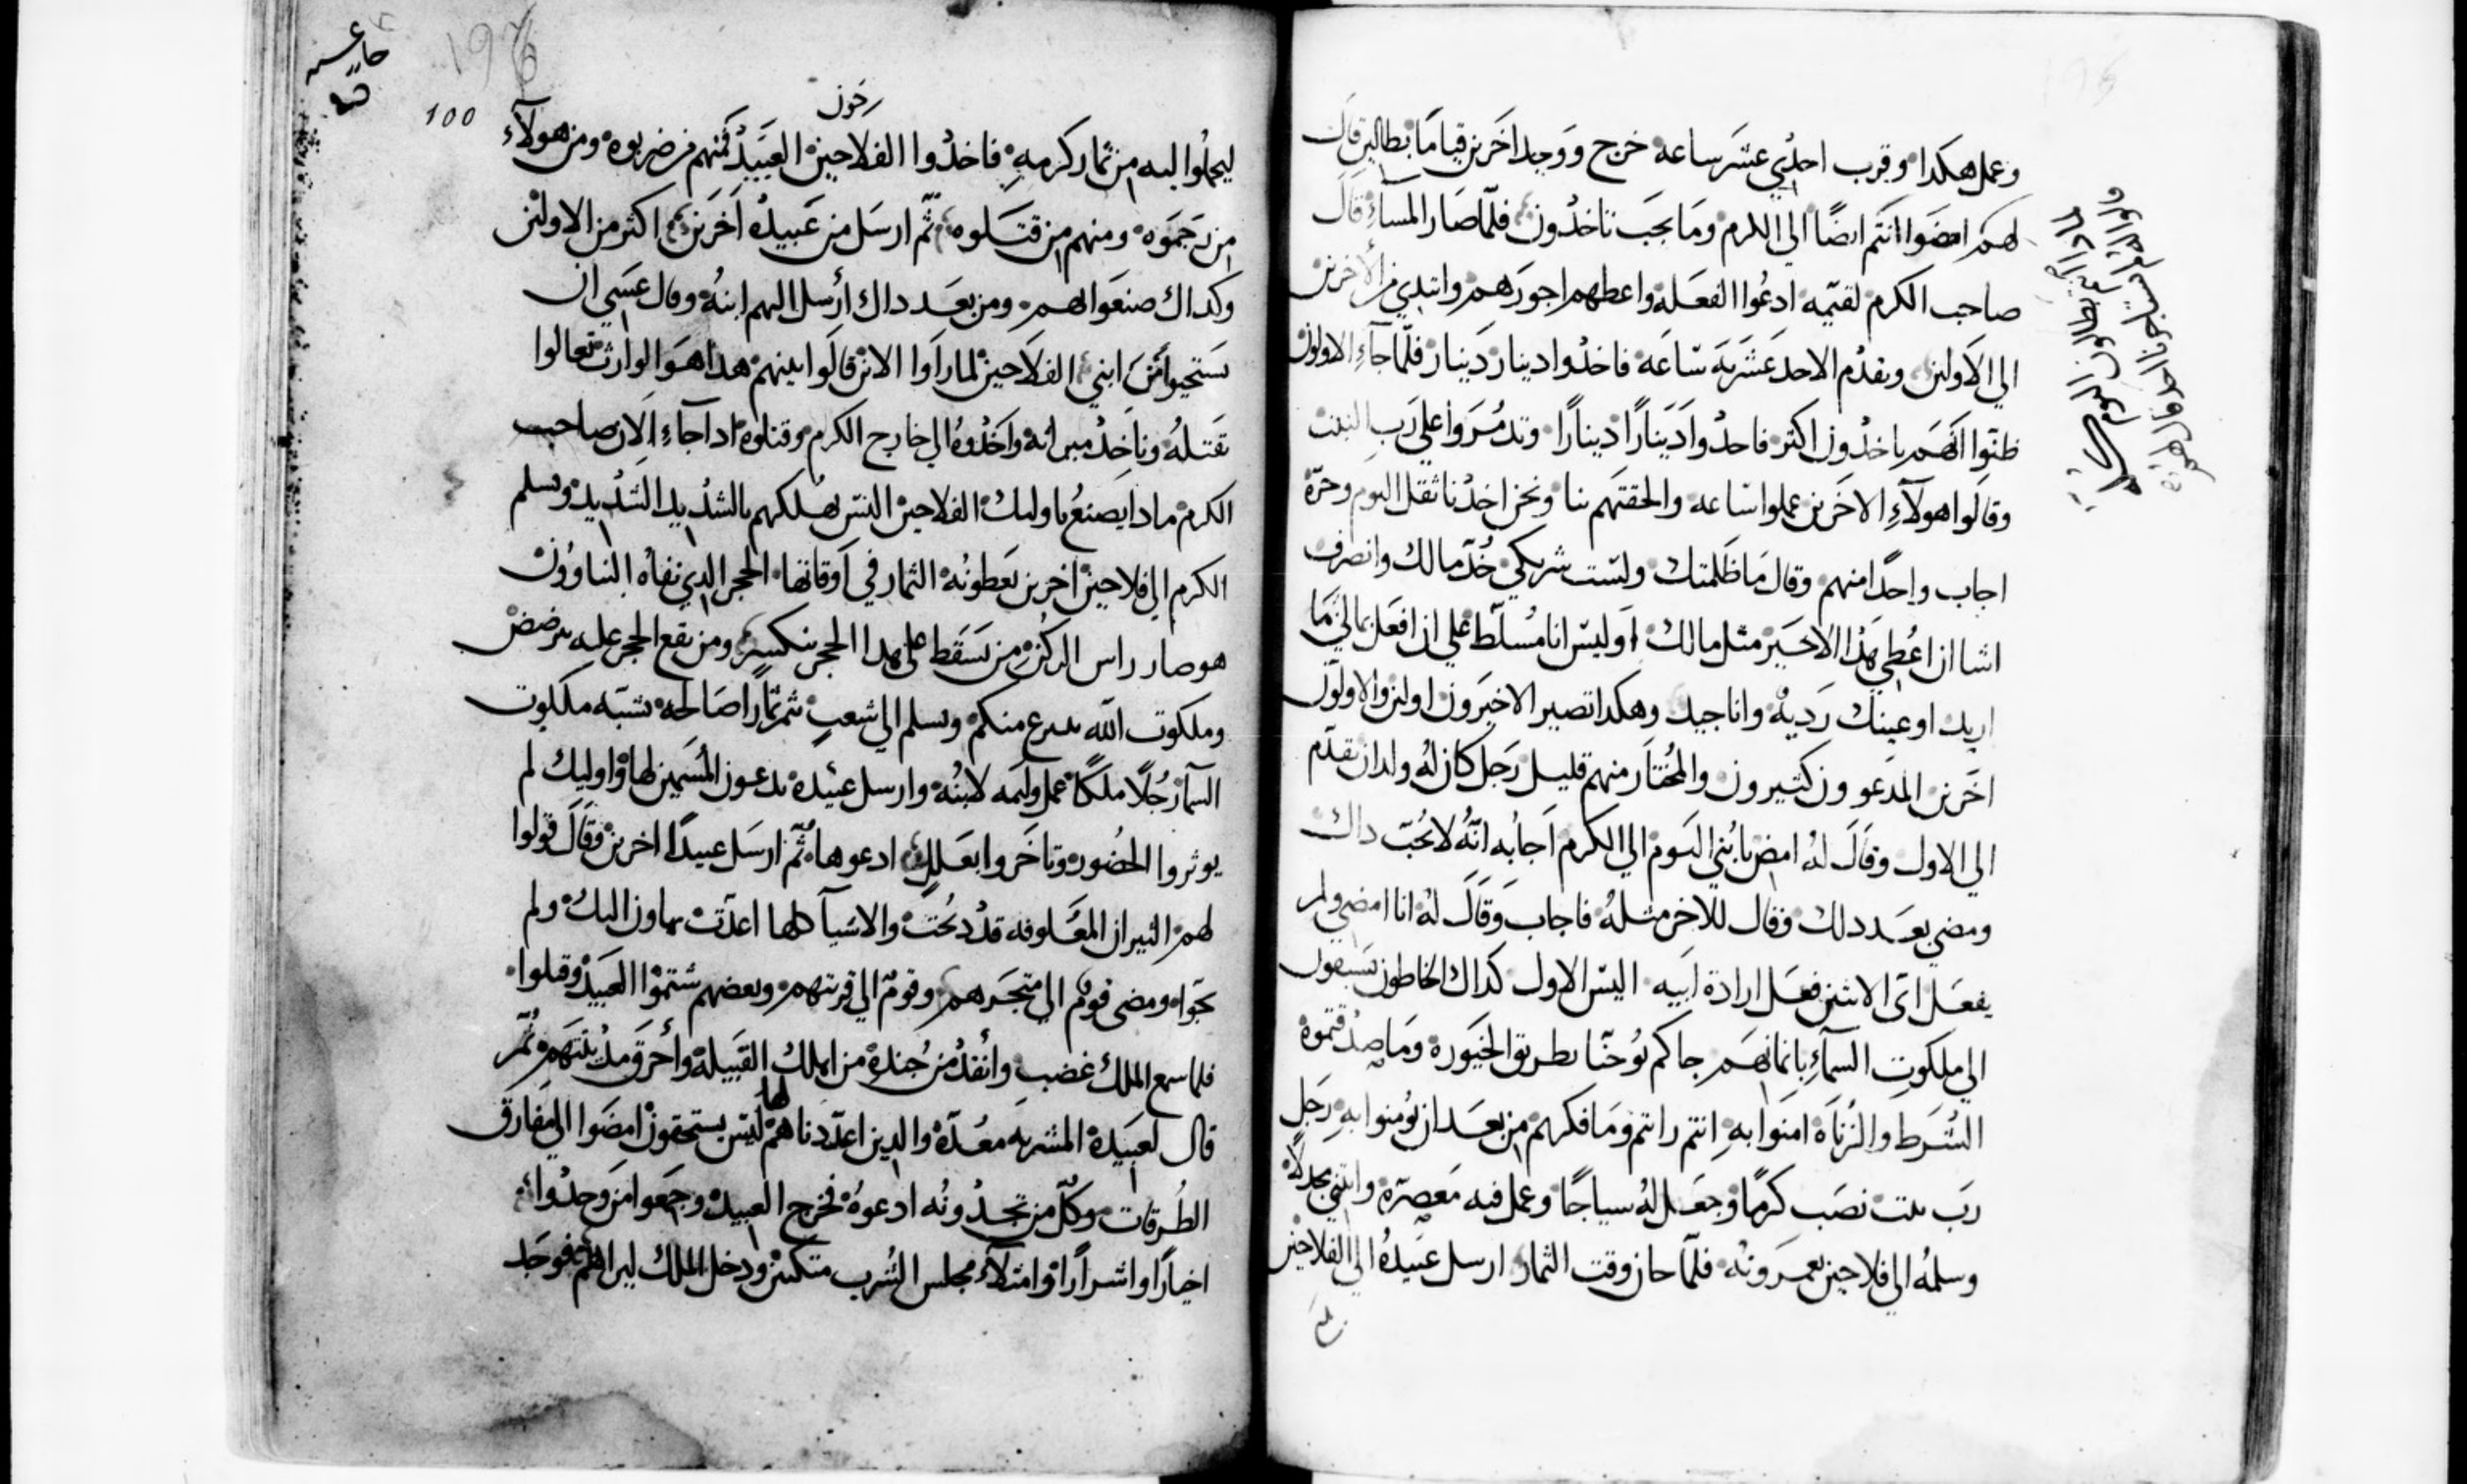 وعمل هكدا وقرب احدي عشر ساعه خرج ووجد اخرين قياما بطالين قال
لهم امضوا انتم ايضا الي الكرم وما يجب تاخدون فلما صار المساء قال
صاحب الكرم لقيمه ادعوا الفعله واعطهم اجورهم وابتدي من الاخرين
الي الاولين وبقدم الاحد عشريه ساعه فاخدوا دينار دينار فلما جاء الاولون
ظنوا انهم ياخدون اكثر فاخدوا دينارا دينارا وتدمروا علي رب البيت
وقالوا هولاء الاخرين عملوا ساعه والحقتهم بنا ونحن اخدنا ثقل اليوم وحره
اجاب واحدا منهم وقال ما ظلمتك ولست شريكي خد مالك وانصرف
اشا ان اعطي هدا الاخير مثل مالك اوليس انا مسلط علي ان افعل بمالي ما
اريد او عينك رديه وانا جيد وهكدا تصير الاخيرون اولين والاولون
اخرين المدعوون كثيرون والمختار منهم قليل رجل كان له ولدان تقدم
الي الاول وقال له امض يابني اليوم الي الكرم اجابه انه لا يحب داك
ومضي بعد دلك وقال للاخر مثله فاجاب وقال له انا امضي ولم
يفعل اي الاثنين فعل ارادة ابيه اليس الاول كداك الخاطون يسبقون
الي ملكوت السماء بايمانهم جاكم يوحنا بطريق الخيوره وما صدقتموه
الشرط والزناة امنوا به انتم رايتم وما فكرهم من بعد ان تومنوا به رجل
رب بيت نصب كرما وجعل له سياجا وعمل فيه معصره وابتني مجدلا
وسلمه الي فلاحين يعمرونه فلما حان وقت الثمار ارسل عبيده الي الفلاحين
100
ليحملوا اليه من ثمار كرمه فاخدوا الفلاحين العبيد فمنهم من ضربوه ومن هولاء
من رجموه ومنهم من قتلوه ثم ارسل من عبيده اخرين اكثر من الاولين
وكداك صنعوا لهم ومن بعد داك ارسل اليهم ابنه وقال عسي ان
يستحيوا من ابني الفلاحين لما راوا الابن قالوا بينهم هدا هو الوارث تعالوا
نقتله وناخد ميراثه واخدوه الي خارج الكرم وقتلوه ادا جاء الان صاحب
الكرم مادا يصنع باوليك الفلاحين اليس يهلكهم بالشديد الشديد ويسلم
الكرم الي فلاحين اخرين يعطونه الثمار في اوقاتها الحجر الدي نفاه البناوون
هو صار راس الركن من يسقط علي هدا الحجر ينكسر ومن يقع الحجر عليه يترضض
وملكوت الله ينزع منكم ويسلم الي شعب يثمر ثمارا صالحه تشبه ملكوت
السما رجلا ملكا عمل وليمه لابنه وارسل عبيده يدعون المسمين لها واوليك لم
يوثروا الحضور وتاخروا بعلل ادعوها ثم ارسل عبيدا اخرين وقال قولوا
لهم الثيران المعلوفه قد دبحت والاشيا كلها اعدت يماون اليك ولم
يحبوا ومضي قوم الي متجرهم وقوم الي قريتهم وبعضهم شتموا العبيد وقتلوا
فلما سمع الملك غضب وانفد من جنده من اهلك القبيله واحرق مدينتهم ثم
قال لعبيده المشربه معده والدين اعددناهم لها ليس يستحقون امضوا الي مفارق
الطرقات وكل من تجدونه ادعوه فخرج العبيد وجمعوا من وجدوا
اخيارا واشرارا وامتلاء مجلس الشرب متكيين ودخل الملك ليراهم فوجد